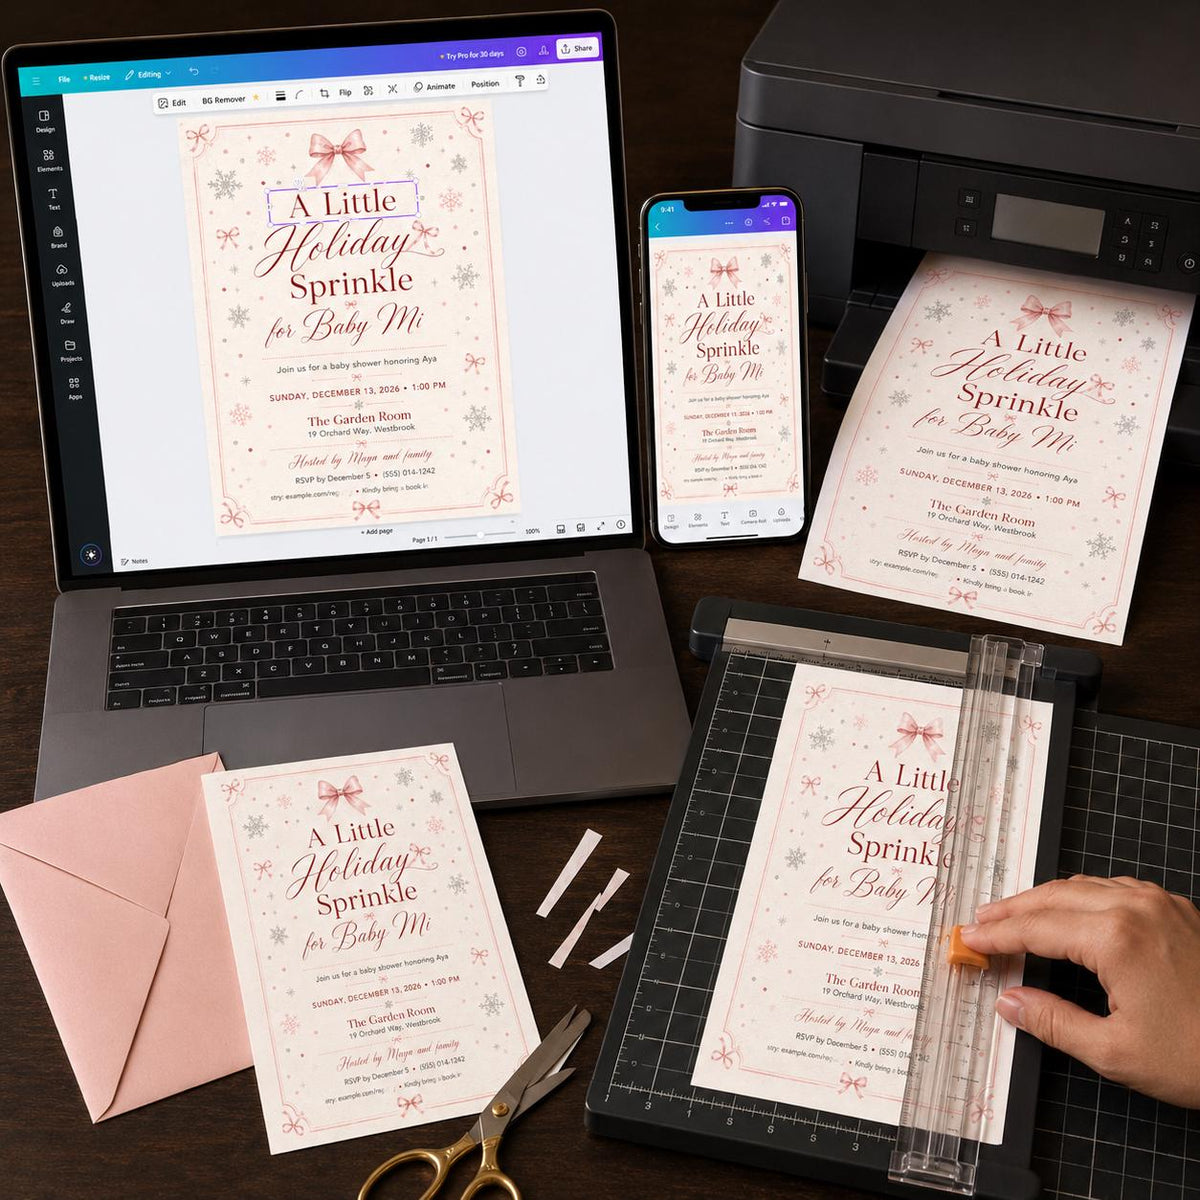 File
Resize
Editing
Try Pro for 30 days
Share
Edit
BG Remover
Flip
Animate
Position
Design
Elements
Text
Brand
Uploads
Draw
Projects
Apps
A Little
Holiday
Sprinkle
for Baby Mi
Join us for a baby shower honoring Aya
SUNDAY, DECEMBER 13, 2026 • 1:00 PM
The Garden Room
19 Orchard Way, Westbrook
Hosted by Maya and family
RSVP by December 5 • (555) 014-1242
stry: example.com/reg • Kindly bring a book in
+ Add page
Page 1 / 1
100%
Notes
9:41
A Little
Holiday
Sprinkle
for Baby Mi
Join us for a baby shower honoring Aya
SUNDAY, DECEMBER 13, 2026 • 1:00 PM
The Garden Room
19 Orchard Way, Westbrook
Hosted by Maya and family
RSVP by December 5 • (555) 014-1242
Design
Elements
Text
Camera Roll
Uploads
A Little
Holiday
Sprinkle
for Baby Mi
Join us for a baby shower honoring Aya
SUNDAY, DECEMBER 13, 2026 • 1:00 PM
The Garden Room
19 Orchard Way, Westbrook
Hosted by Maya and family
RSVP by December 5 • (555) 014-1242
stry: example.com/reg • Kindly bring a book in
A Little
Holiday
Sprinkle
for Baby Mi
Join us for a baby shower honoring Aya
SUNDAY, DECEMBER 13, 2026 • 1:00 PM
The Garden Room
19 Orchard Way, Westbrook
Hosted by Maya and family
RSVP by December 5 • (555) 014-1242
stry: example.com/reg • Kindly bring a book in
A Little
Holiday
Sprinkle
for Baby Mi
Join us for a baby shower hon
SUNDAY, DECEMBER 13, 2026
The Garden Room
19 Orchard Way, Westbrook
Hosted by Maya and family
RSVP by December 5 • (555) 014
stry: example.com/reg • Kindly bring a book